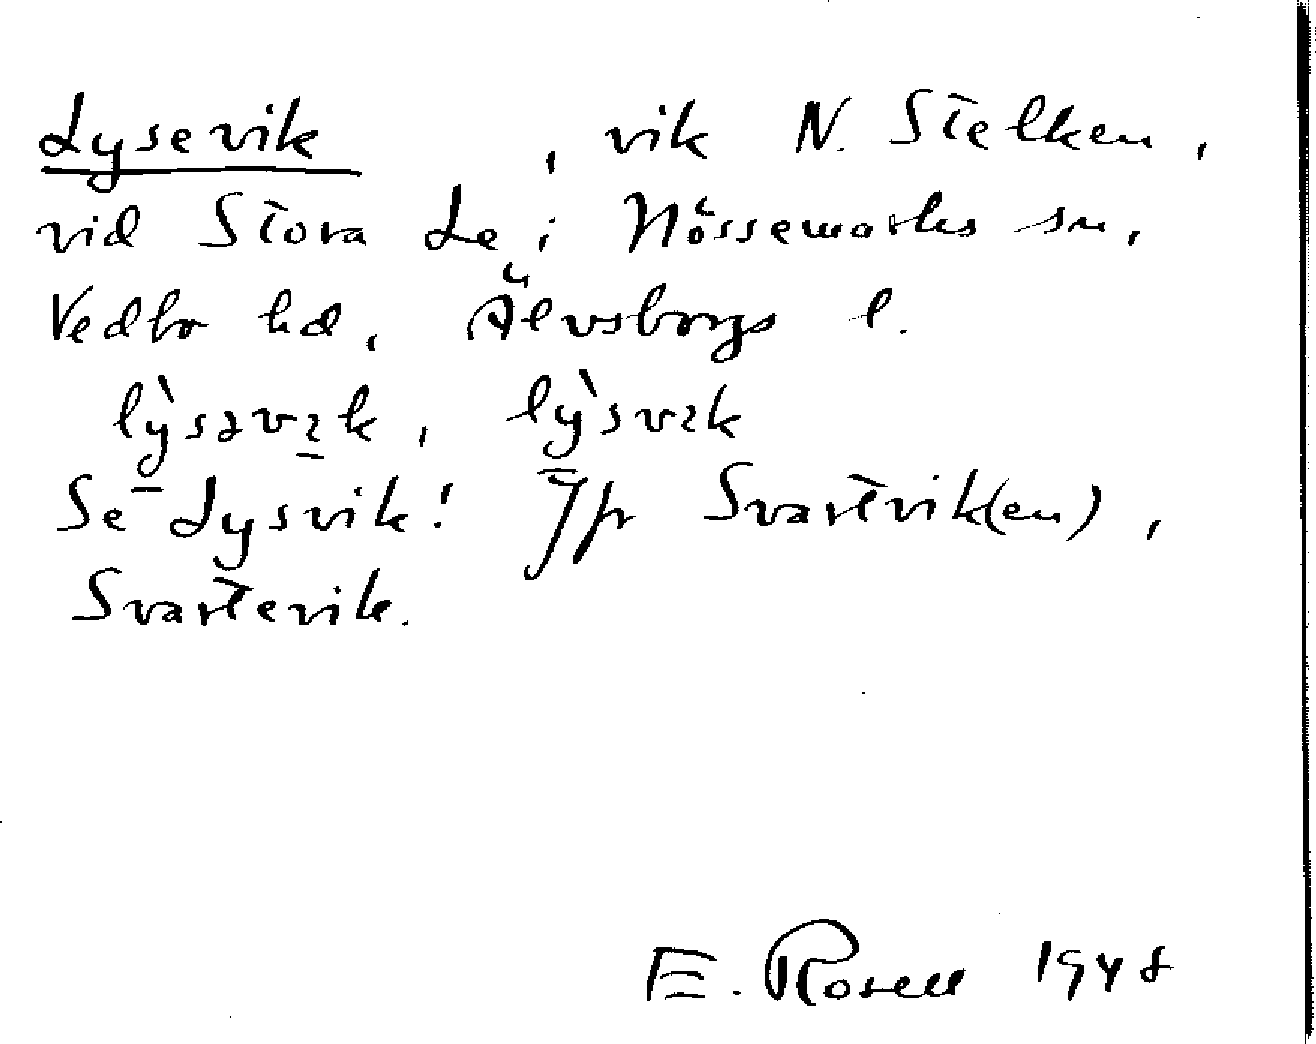 Lysevik, vik N. Stelken,
vid Stora Le i Nössemarks sn,
Vedbo hd, Älvsborgs l.
lỳsəvɪk, lỳsvɪk
Se Lysvik! Jfr Svartvik(en),
Svartevik.
E. Rosell 1948